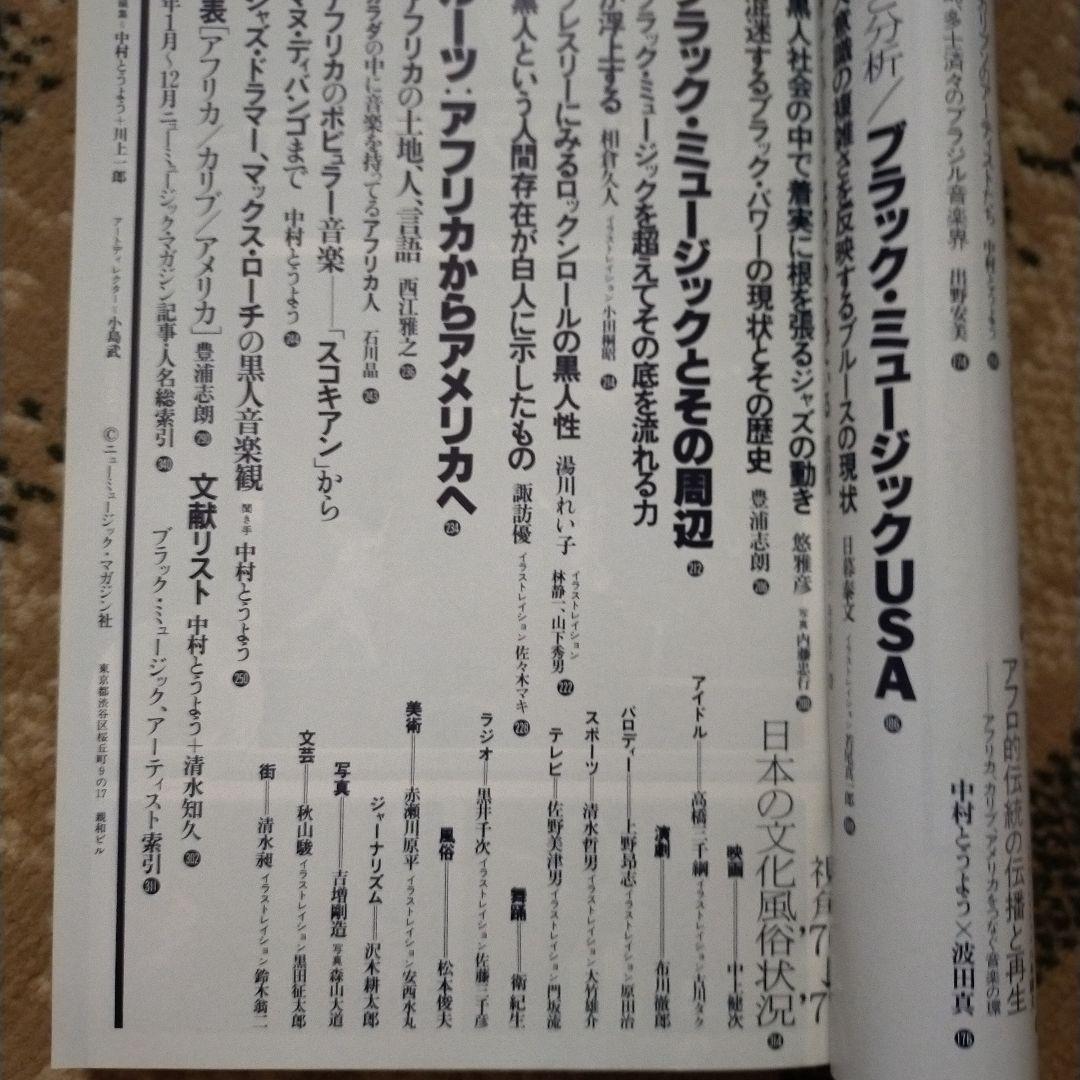 カリブのアーティストたち 中村とうよう
多士済々のブラジル音楽界 出野安美 174
アフロ的伝統の伝播と再生
——アフリカ、カリブ、アメリカをつなぐ音楽の環
中村とうよう×波田真 176
分析／ブラック・ミュージックUSA 186
意識の複雑さを反映するブルースの現状 日暮泰文 イラストレイション
黒人社会の中で着実に根を張るジャズの動き 悠雅彦 写真 内藤忠行 200
混迷するブラック・パワーの現状とその歴史 豊浦志朗 206
ブラック・ミュージックとその周辺 212
ブラック・ミュージックを超えてその底を流れる力
が浮上する 相倉久人 イラストレイション 小田桐昭 214
プレスリーにみるロックンロールの黒人性 湯川れい子 イラストレイション 林静一、山下秀男 222
黒人という人間存在が白人に示したもの 諏訪優 イラストレイション 佐々木マキ 228
ルーツ：アフリカからアメリカへ 234
アフリカの土地、人、言語 西江雅之 236
カラダの中に音楽を持ってるアフリカ人 石川晶 243
アフリカのポピュラー音楽——「スコキアン」から
マヌ・ディバンゴまで 中村とうよう 244
ジャズ・ドラマー、マックス・ローチの黒人音楽観 聞き手 中村とうよう 250
表［アフリカ／カリブ／アメリカ］ 豊浦志朗 290 文献リスト 中村とうよう＋清水知久 302
年1月〜12月ニューミュージック・マガジン記事・人名総索引 340 ブラック・ミュージック、アーティスト索引 311
日本の文化風俗状況 164
映画——中上健次
演劇——布川徹郎
アイドル——高橋三千綱 イラストレイション 古川タク
パロディー——上野昂志 イラストレイション 原田治
スポーツ——清水哲男 イラストレイション 大竹雄介
テレビ——佐野美津男 イラストレイション 門坂流
舞踊——衛紀生
ラジオ——黒井千次 イラストレイション 佐藤三千彦
風俗——松本俊夫
美術——赤瀬川原平 イラストレイション 安西水丸
ジャーナリズム——沢木耕太郎
写真——吉増剛造 写真 森山大道
文芸——秋山駿 イラストレイション 黒田征太郎
街——清水昶 イラストレイション 鈴木翁二
編集＝中村とうよう＋川上一郎 アートディレクター＝小島武 ©ニューミュージック・マガジン社 東京都渋谷区桜丘町9の17 親和ビル